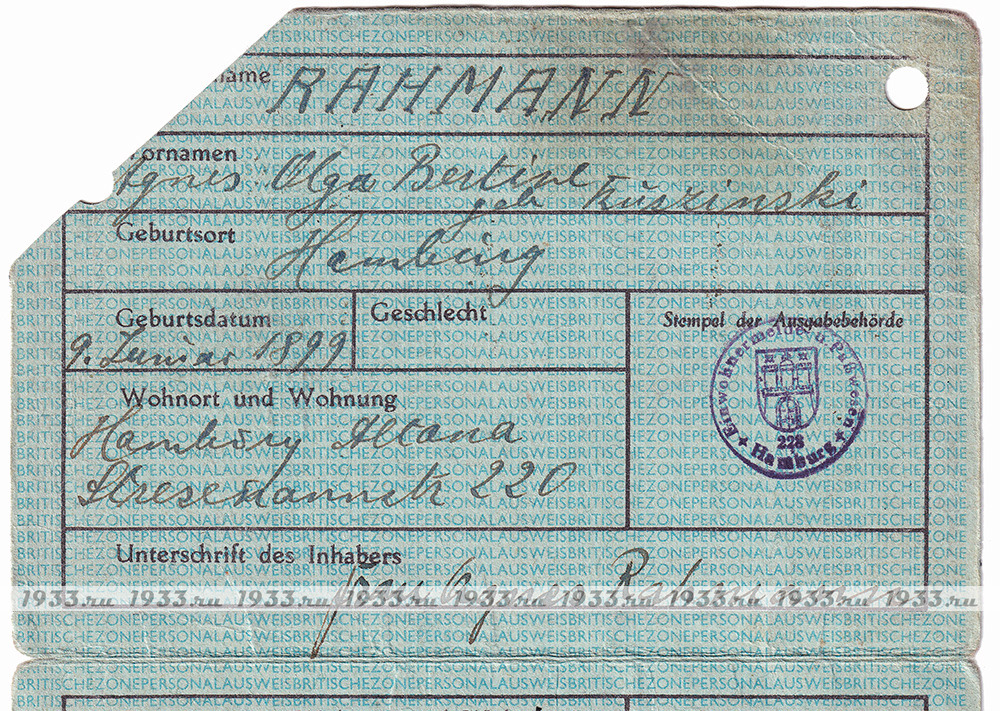 name RAHMANN
Vornamen
Agnes Olga Bertine
geb Kuszinski
Geburtsort
Hamburg
Geburtsdatum
9. Januar 1899
Geschlecht
Stempel der Ausgabebehörde
Einwohnermelde- u. Paßwesen
228
Hamburg
Wohnort und Wohnung
Hamburg Altona
Stresemannstr 220
Unterschrift des Inhabers
Frau Agnes Rahmann
1933.ru 1933.ru 1933.ru 1933.ru 1933.ru 1933.ru 1933.ru 1933.ru 1933.ru
BRITISCHEZONEPERSONALAUSWEIS